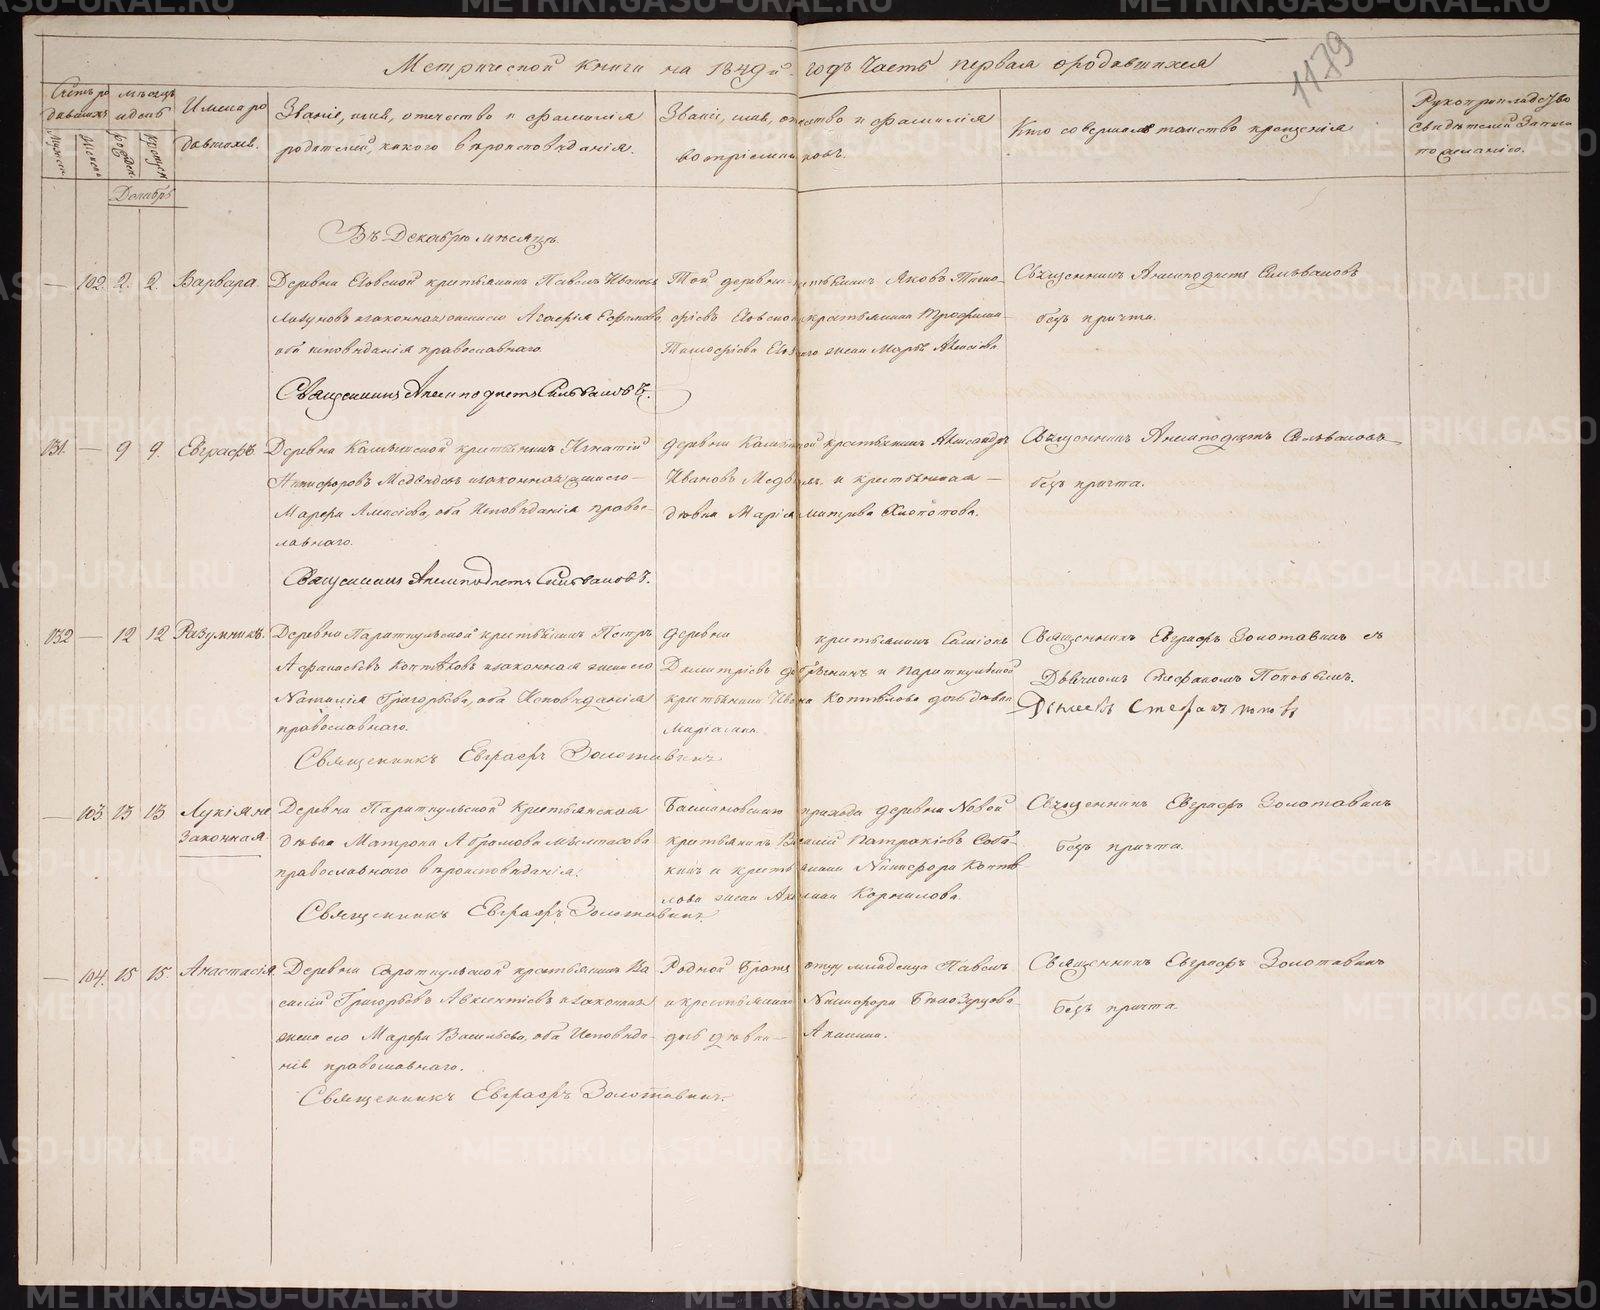 Метрической книги на 1849й годъ Часть первая о родившихся
1179
Счетъ родившихся
Мужеск.
Женска
мѣсяцъ и день
рожден.
крещен.
Имена родившихся.
Званіе, имя, отчество и фамилія
родителей, какого вѣроисповѣданія.
Званіе, имя, отчество и фамилія
воспріемниковъ.
Кто совершалъ таинство крещенія
Рукоприкладство
свидѣтелей записи
по желанію.
Декабрь
Въ Декабрѣ мѣсяцѣ.
— 102. 2. 2. Варвара.
Деревни крестьянинъ Павелъ Ивановъ
и законная жена его Агафія Ефимова
оба исповѣданія православнаго.
Священникъ Анемподистъ Сильвановъ.
Той деревни крестьянинъ Яковъ Тимо-
ѳеевъ крестьянина Трофима
Тимоѳеева жена Марѳа Алексѣева
Священникъ Анемподистъ Сильвановъ
безъ причта.
131. — 9 9. Евграфъ.
Деревни крестьянинъ Игнатій
Никифоровъ Медвѣдевъ и законная жена его
Марѳа Алексіева, оба исповѣданія право-
славнаго.
Священникъ Анемподистъ Сильвановъ.
деревни крестьянинъ Александръ
Ивановъ и крестьянская
дѣвка Марія
Священникъ Анемподистъ Сильвановъ
безъ причта.
132 — 12 12 Разумникъ.
Деревни Параткульской крестьянинъ Петръ
Афанасьевъ Коптѣловъ и законная жена его
Наталія Григорьева, оба исповѣданія
православнаго.
Священникъ Евграфъ Золотавинъ
деревни крестьянинъ Симіонъ
Димитріевъ и Параткульской
крестьянина Ивана Коптѣлова дочь дѣвка
Маріамна.
Священникъ Евграфъ Золотавинъ съ
Дьячкомъ Стефаномъ Поповымъ.
Дьячекъ Стефанъ Поповъ
— 103. 13 13 Лукія не
законная.
Деревни Параткульской крестьянская
дѣвка Матрона Абрамова
православнаго вѣроисповѣданія.
Священникъ Евграфъ Золотавинъ.
прихода деревни Новой
крестьянинъ Василій Патракіевъ Соба-
кинъ и крестьянина Никифора Коптѣ-
лова жена Корнилова.
Священникъ Евграфъ Золотавинъ
безъ причта.
— 104. 15 15 Анастасія.
Деревни Параткульской крестьянинъ Ва
силій Григорьевъ Авксентіевъ и законная
жена его Марѳа Васильева, оба исповѣда-
нія православнаго.
Священникъ Евграфъ Золотавинъ.
Родной братъ отцу младенца Павелъ
и крестьянина Никифора Бѣлозерцова
дочь дѣвка— Акилина.
Священникъ Евграфъ Золотавинъ
безъ причта.
METRIKI.GASO-URAL.RU